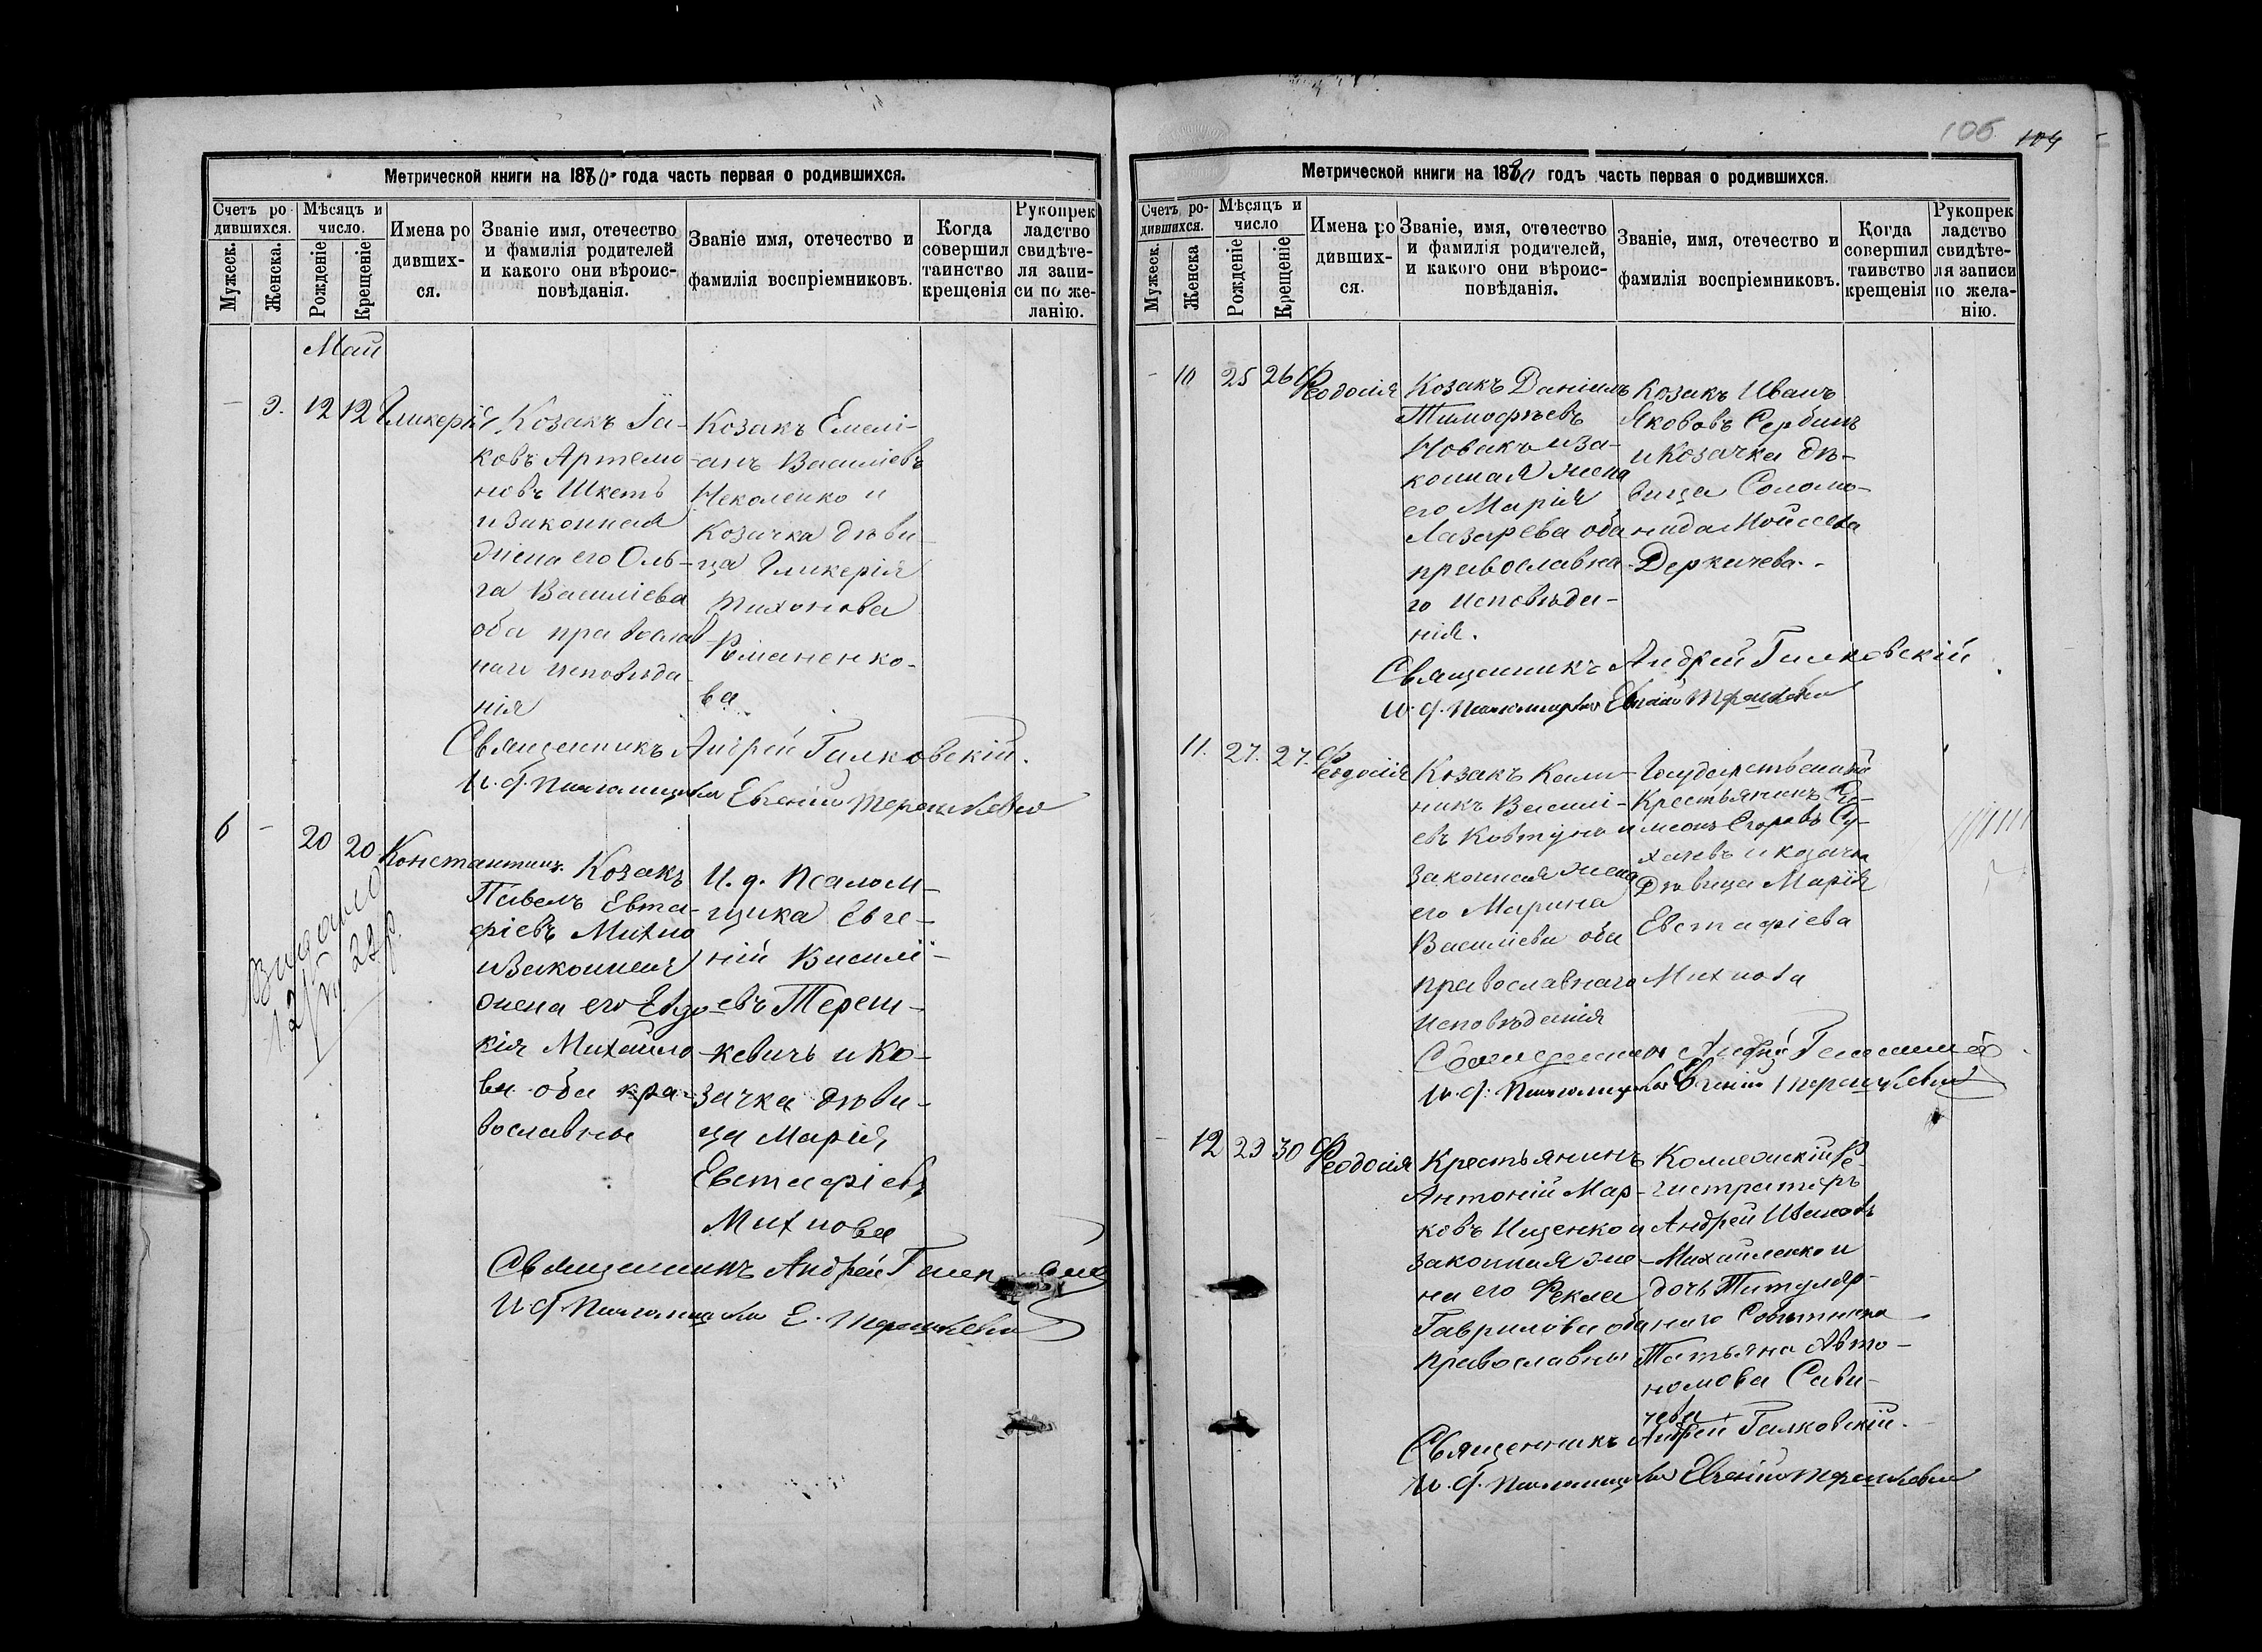 Метрической книги на 1880 года часть первая о родившихся.
Счетъ ро-
дившихся.
Мужеск.
Женска.
Мѣсяцъ и
число.
Рожденіе
Крещеніе
Имена ро
дивших-
ся.
Званіе имя, отечество
и фамилія родителей
и какого они вѣроис-
повѣданія.
Званіе имя, отечество и
фамилія воспріемниковъ.
Когда
совершил
таинство
крещенія
Рукопрек
ладство
свидѣте-
ля запи-
си по же-
ланію.
Май
9. 12 12 Гликерія
Козакъ Іа-
ковъ Артемо-
новъ Шкетъ
и законная
жена его Оль-
га Василіева
оба православ-
наго исповѣда-
нія
Козакъ Емелі-
анъ Василіевъ
Неколенко и
Козачка дѣви-
ца Гликерія
Тихонова
Романенко-
ва
Священникъ Андрей Галковскій.
И. д. Псаломщика Евгеній Терешкевич
6 - 20 20 Константинъ.
Козакъ
Павелъ Евста-
фіевъ Михно
и законная
жена его Евдо-
кія Михайло-
ва оба пра-
вославные
И. д. Псалом-
щика Евге-
ній Василі-
евъ Тереш-
кевичъ и Ко-
зачка дѣви-
ца Марія
Евстафіева
Михнова
22 р.
Священникъ Андрей
И. д. Псаломщика Е. Терешкевич
106 104
Метрической книги на 1880 годъ часть первая о родившихся.
Счетъ ро-
дившихся.
Мужеск.
Женска
Мѣсяцъ и
число
Рожденіе
Крещеніе
Имена ро
дивших-
ся.
Званіе, имя, отечество
и фамилія родителей,
и какого они вѣроис-
повѣданія.
Званіе, имя, отечество и
фамилія воспріемниковъ.
Когда
совершил
таинство
крещенія
Рукопрек
ладство
свидѣте-
ля записи
по жела-
нію.
- 10 25 26 Феодосія
Козакъ Даніилъ
Тимофѣевъ
Новакъ и за-
конная жена
его Марія
Лазарева оба
православна-
го исповѣда-
нія.
Козакъ Иванъ
Яковъ Сербинъ
и Козачка дѣ-
вица Соломо-
нида Моисеева
Деркачева.
Священникъ Андрей Галковскій
И. д. Псаломщика Евгеній Терешкевич
11. 27. 27. Феодосія
Козакъ Кали-
никъ Василі-
евъ Ковтунъ и
законная жена
его Марина
Василіева оба
православнаго
исповѣданія
Государственный
Крестьянинъ Си-
меонъ Егоровъ Су-
хачевъ и козачка
Дѣвица Марія
Евстафіева
Михнова
Священникъ Андрей Галковскій
И. д. Псаломщика Евгеній Терешкевич
- 12 29 30 Феодосія
Крестьянинъ
Антоній Мар-
ковъ Ищенко и
законная же-
на его Фекла
Гаврилова оба
православны
Коллежскій Ре-
гистраторъ
Андрей Ивановъ
Михайленко и
дочь Титуляр-
наго Совѣтника
Татьяна Авто-
номова Сави-
чева
Священникъ Андрей Галковскій.
И. д. Псаломщика Евгеній Терешкевич